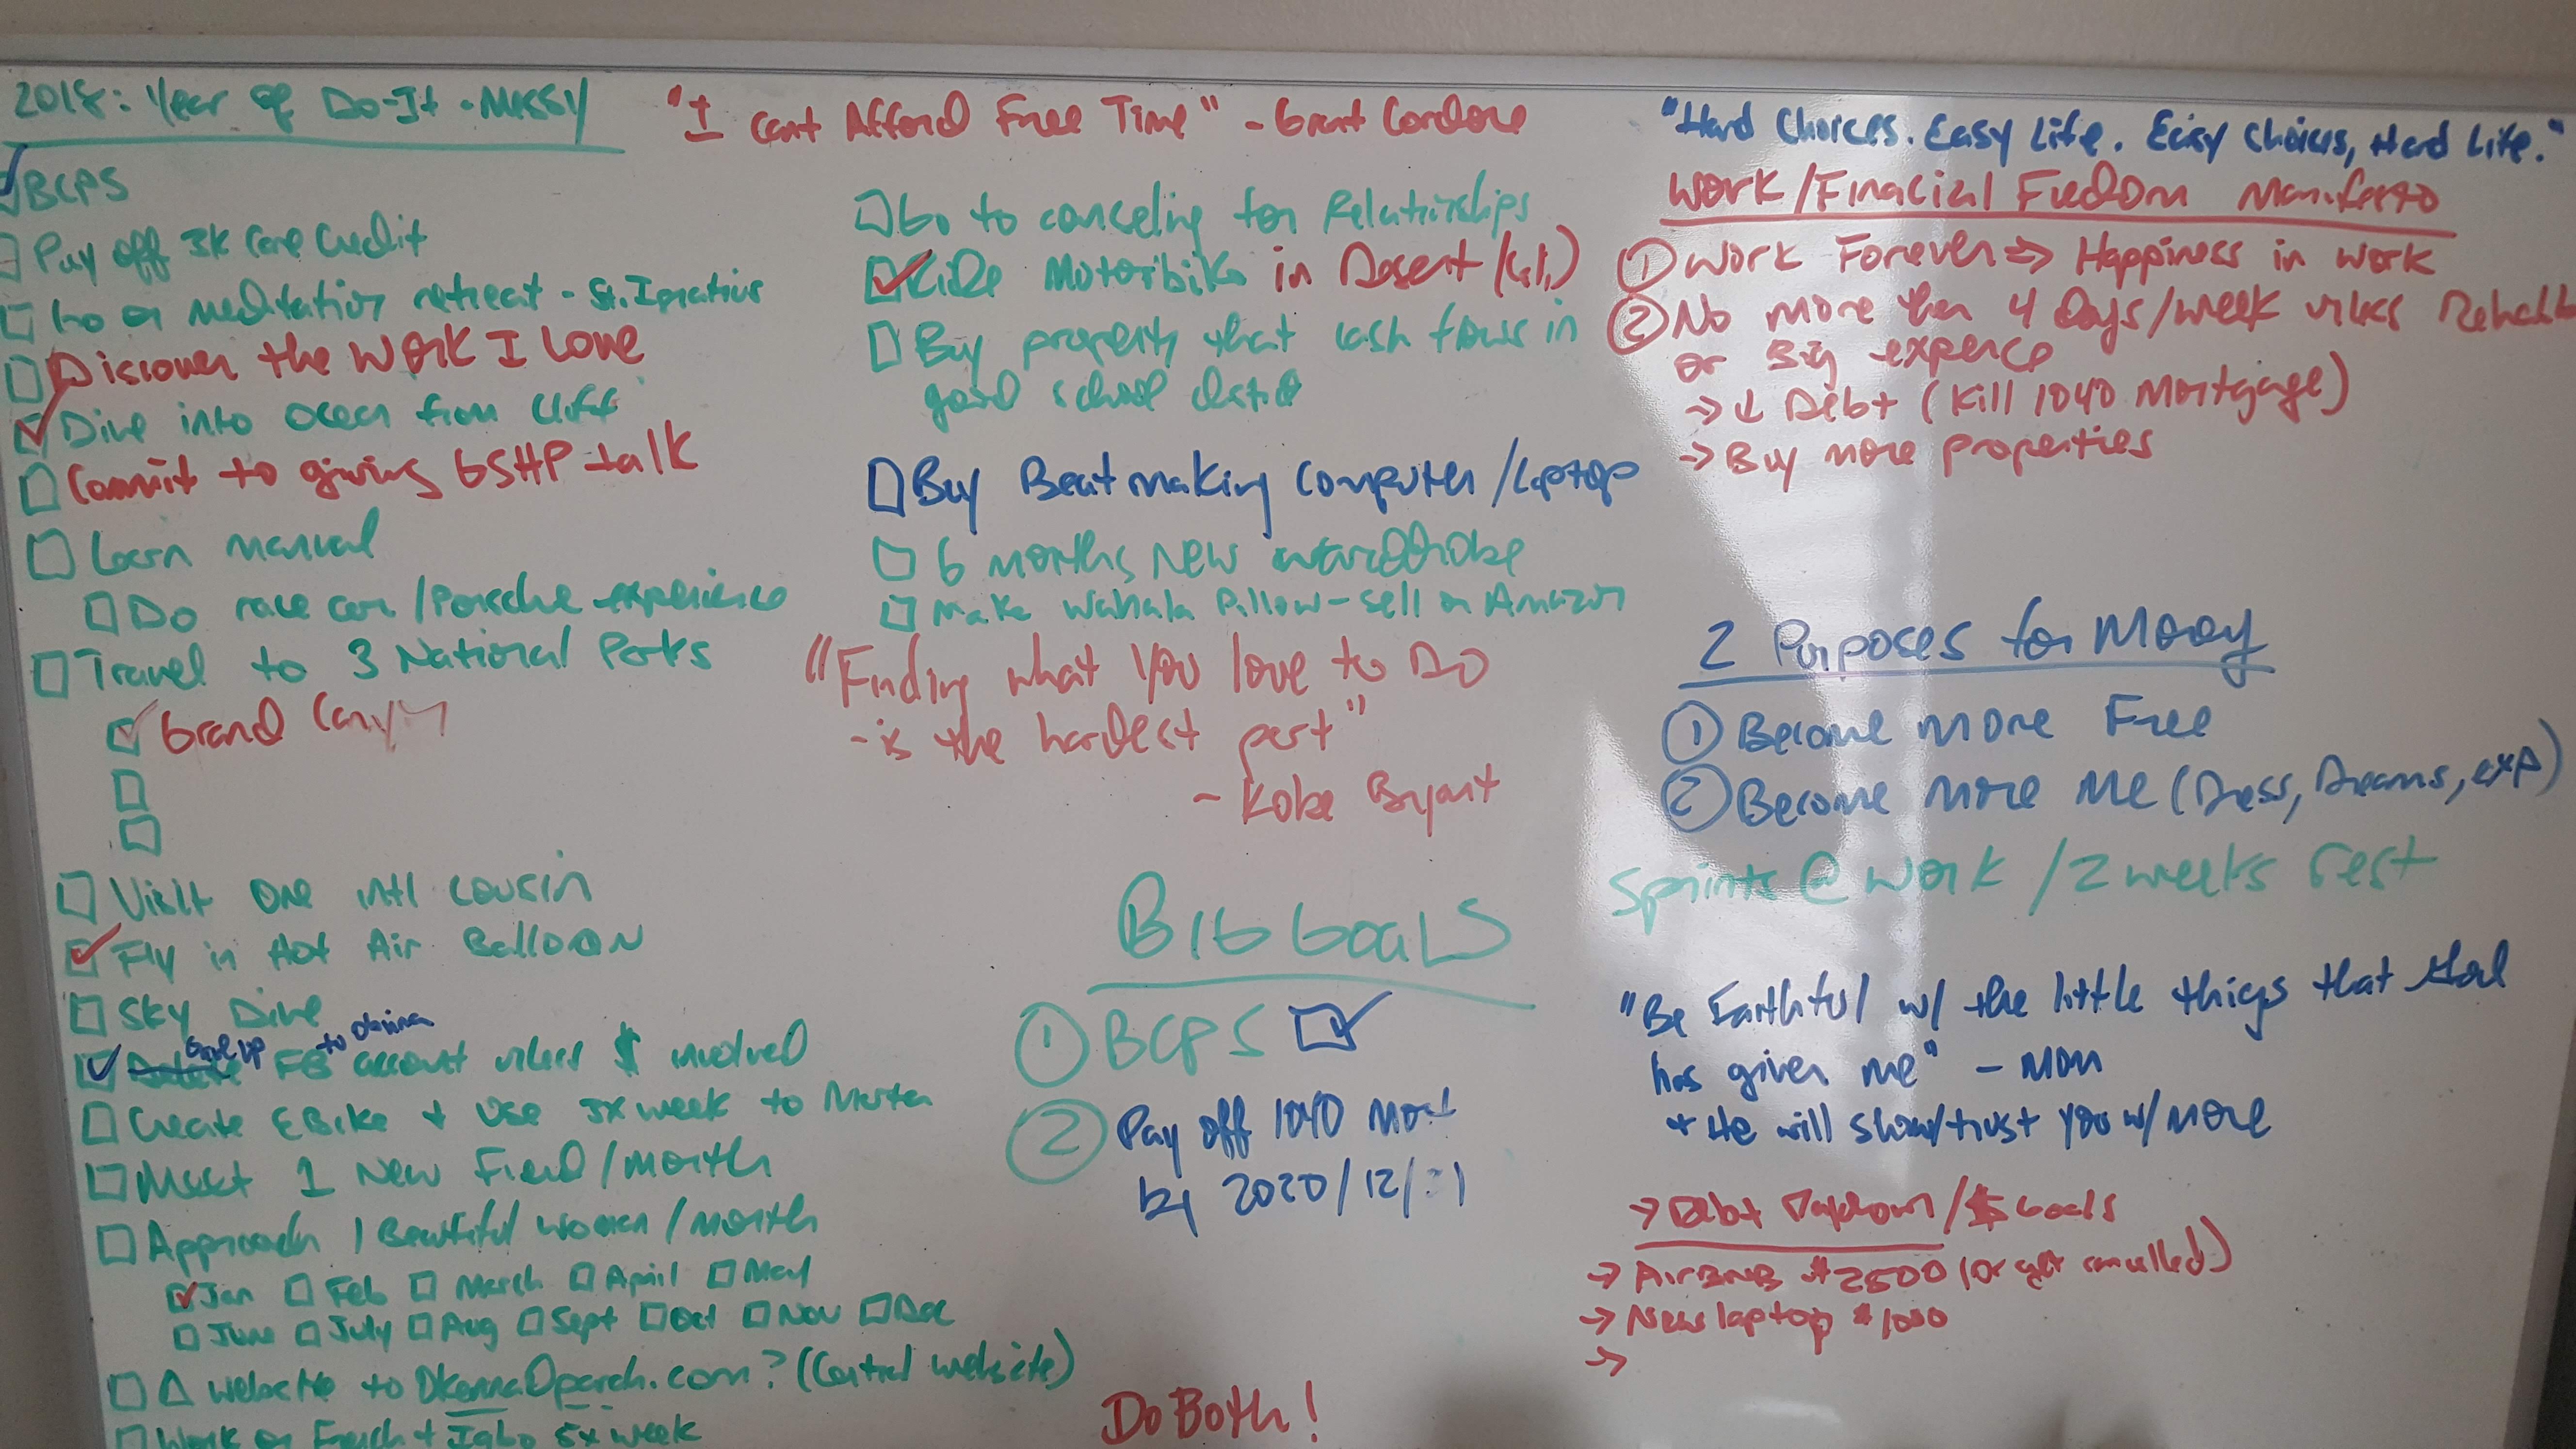 2018: Year of Do-It-Messy
BCPS
Pay off 3K Care Credit
Go on meditation retreat - St. Ignatius
Discover the work I Love
Dive into Ocean from Cliff
Commit to giving GSHP talk
Learn manual
Do race car/Porsche experience
Travel to 3 National Parks
Grand Canyon
Visit one intl cousin
Fly in Hot Air Balloon
Sky Dive
Give up to
FB account unless $ involved
Create EBike + use 3x week to
Meet 1 New Friend/month
Approach 1 Beautiful women/month
Jan Feb March April May
June July Aug Sept Oct Nov Dec
Δ website to .com? (Central website)
Work on French + Igbo 5x week
"I Cant Afford Free Time" - Grant Cardone
Go to counseling for Relatinships
Ride Motoribike in Desert (Cali)
Buy property that cash flows in
good school district
Buy Beat making Computer/Laptop
6 months New wardrobe
Make Wahala Pillow - sell on Amazon
"Finding what you love to Do
- is the hardest part"
- Kobe Bryant
BIG GOALS
① BCPS
② Pay off 1040 Mort
by 2020/12/31
Do Both!
"Hard Choices. Easy Life. Easy Choices, Hard Life."
Work/Finacial Freedom Manifesto
① Work Forever => Happiness in work
② No more then 4 Days/week unless Rehab
or Big expence
→ ↓ Debt (Kill 1040 Mortgage)
→ Buy more properties
2 Purposes for Money
① Become more Free
② Become more Me (Dress, Dreams, exp)
Sprints @ work / 2 weeks rest
"Be Faithful w/ the little things that God
has given me" - Mom
+ He will show/trust you w/ more
→ Debt Paydown/$ Goals
→ AirBNB $2500 (or get cancelled)
→ New laptop $1000
→